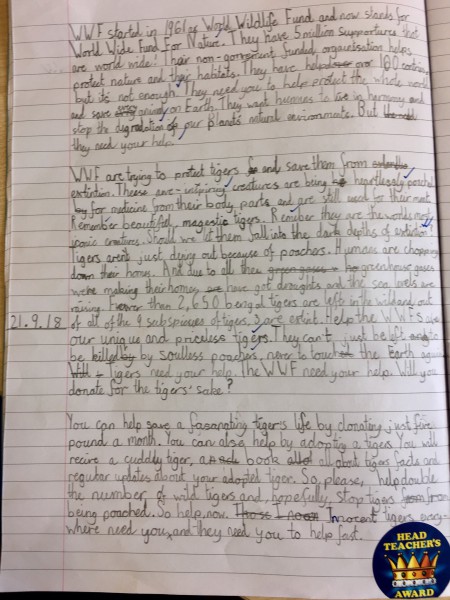 WWF started in 1961 as World Wildlife Fund and now stands for
World Wide Fund For Nature. They have 5 million supporturs that
are world wide! Thair non-goverment funded organisation helps
protect nature and their habitats. They have helped over 100 contries
but its not enough. They need you to help protect the whole world
and save every animal on Earth. They want humans to live in harmony and
stop the degradation of our planets natural enviroments. But
they need your help.
WWF are trying to protect tigers and save them from
extintion. These awe-inspiring creatures are being heartlessly poached
for medicine from their body parts and are still used for their meat.
Remember beautiful, magestic tigers. Remember they are the worlds most
iconic creatures. Should we let them fall into the dark depths of extintion?
Tigers arent just dying out because of poachers. Humans are chopping
down their homes. And due to all the greenhouse gases
we're making their homes have got draughts and the sea levels are
raising. Fewer than 2,650 bengal tigers are left in the wild and out
21.9.18
of all of the 9 subspieces of tigers, 3 are extint. Help the WWF save
our unique and priceless tigers. They can't just be left
be killed by soulless poachers, never to touch the Earth again
Tigers need your help. The WWF need your help. Will you
donate for the tigers' sake?
You can help save a fascinating tiger's life by donating just five
pound a month. You can also help by adopting a tiger. You will
recive a cuddly tiger, a book all about tigers facts and
regular updates about your adopted tiger. So, please, help double
the number of wild tigers and, hopefully, stop tigers from
being poached. So help now. Innocent tigers every-
where need you, and they need you to help fast.
HEAD
TEACHER'S
AWARD